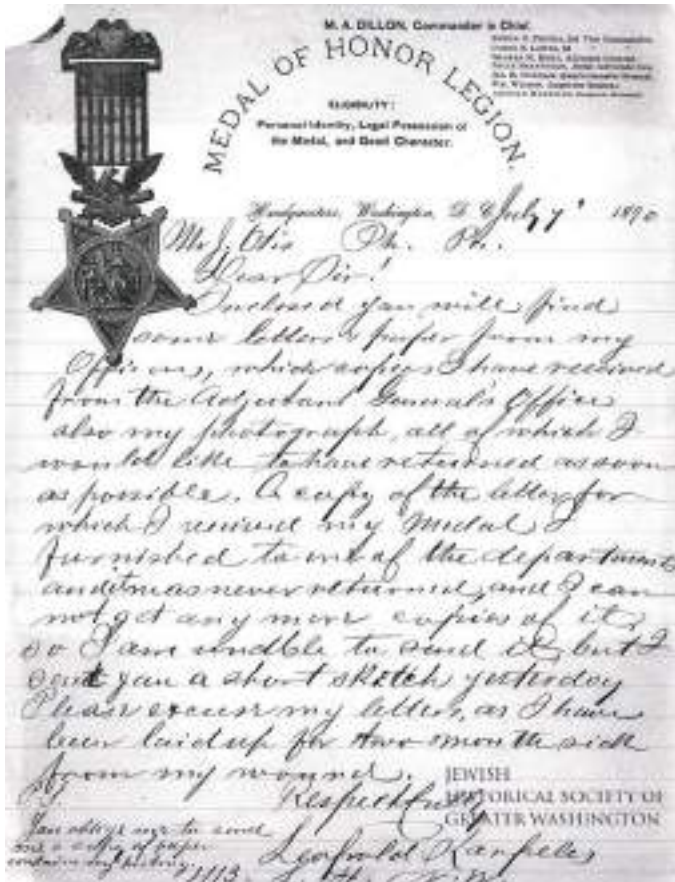 M. A. DILLON, Commander in Chief.
MEDAL OF HONOR LEGION.
ELIGIBILITY:
Personal Identity, Legal Possession of
the Medal, and Good Character.
Headquarters, Washington, D. C. July 7' 1890
Mr J. Otis
Dear Sir!
Enclosed you will find
some letters & paper from my
Officers, which copies I have received
from the Adjutant General's Office
also my photograph, all of which I
would like to have returned as soon
as possible. A copy of the letter for
which I received my Medal I
furnished to one of the departments
and it was never returned, and I can
not get any more copies of it,
so I am unable to send it, but I
sent you a short sketch yesterday
Please excuse my letter, as I have
been laid up for two month sick
from my wound.
Respectfully
Leopold Karpeles
You oblige me to send
me a copy of paper
contain my history.
JEWISH
HISTORICAL SOCIETY OF
GREATER WASHINGTON